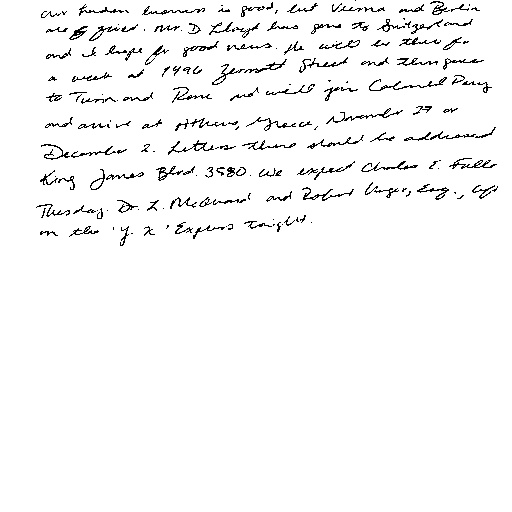 Our London business is good, but Vienna and Berlin
are quiet. Mr. D Lloyd has gone to Switzerland
and I hope for good news. He will be there for
a week at 1496 Zermott Street and then goes
to Turin and Rome and will join Colonel Parry
and arrive at Athens, Greece, November 27 or
December 2. Letters there should be addressed
King James Blvd. 3580. We expect Charles E. Fuller
Tuesday. Dr. L. McQuaid and Robert Unger, Esq., left
on the 'Y. X' Express tonight.